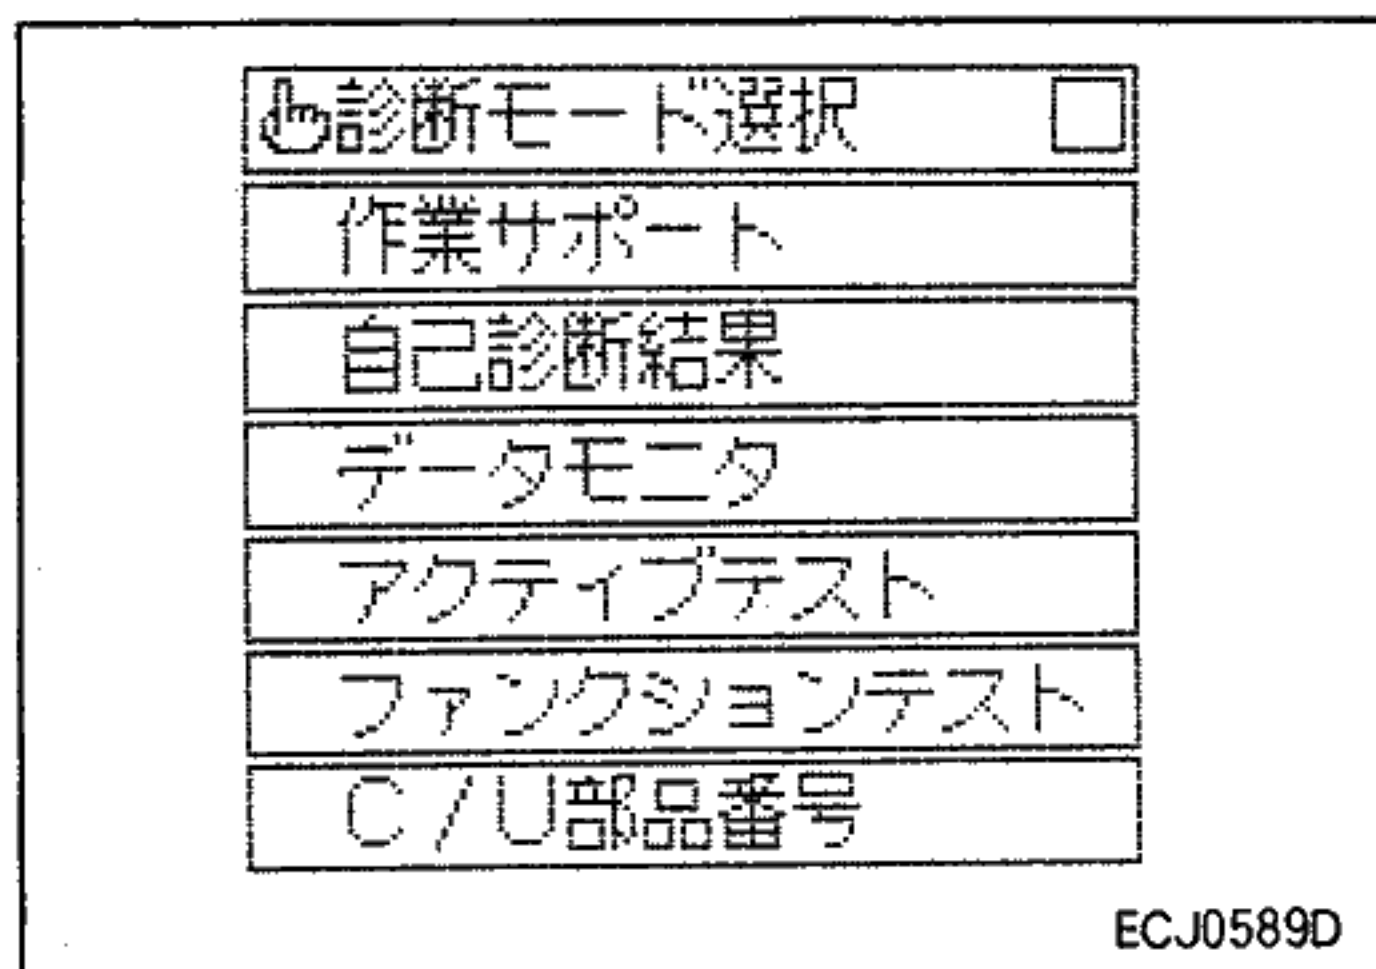 診断モード選択
作業サポート
自己診断結果
データモニタ
アクティブテスト
ファンクションテスト
C/U部品番号
ECJ0589D